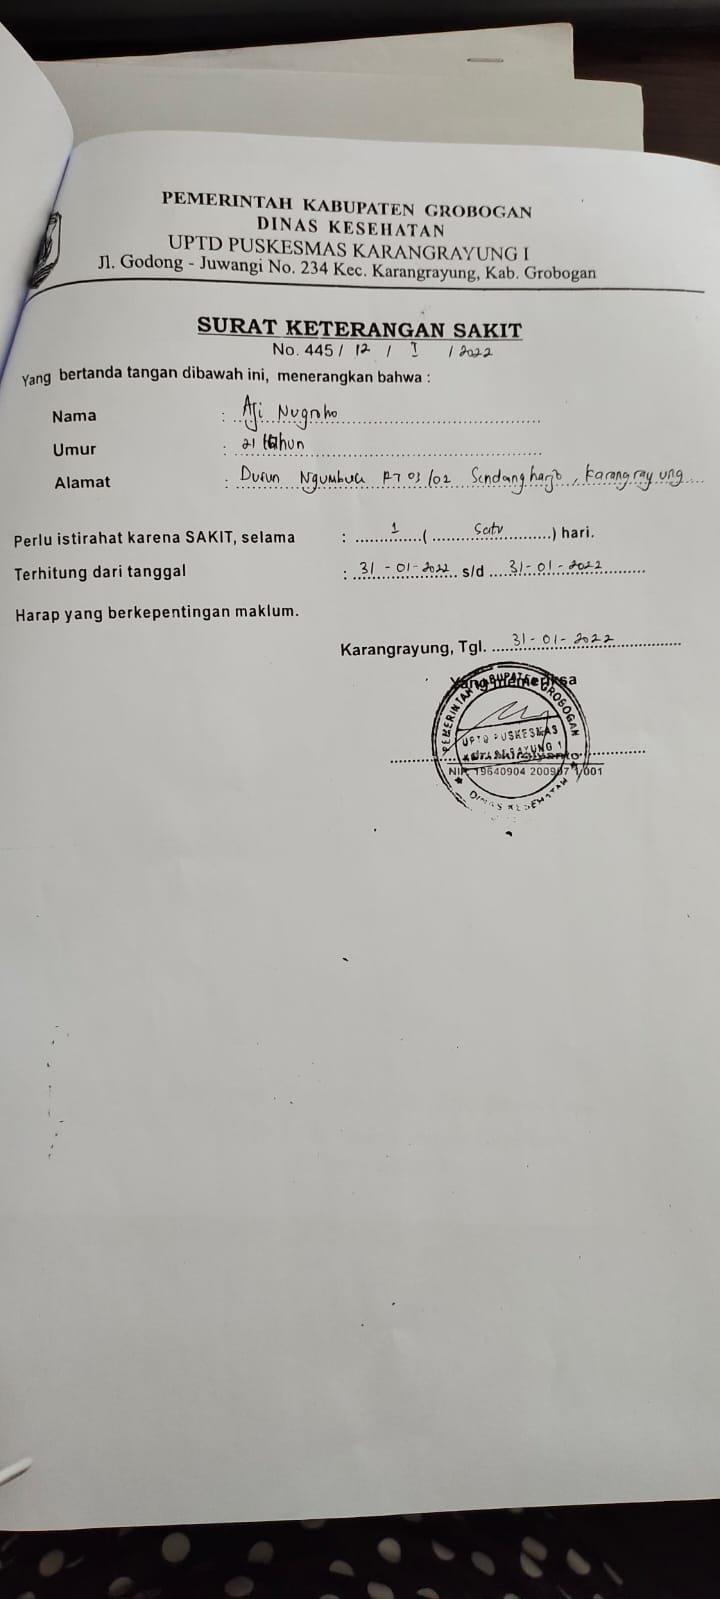 PEMERINTAH KABUPATEN GROBOGAN
DINAS KESEHATAN
UPTD PUSKESMAS KARANGRAYUNG I
Jl. Godong - Juwangi No. 234 Kec. Karangrayung, Kab. Grobogan
SURAT KETERANGAN SAKIT
No. 445 / 12 / I / 2022
Yang bertanda tangan dibawah ini, menerangkan bahwa :
Nama : Aji Nugroho
Umur : 21 tahun
Alamat : RT 03/02 Sendangharjo, Karangrayung
Perlu istirahat karena SAKIT, selama : 1 ( satu ) hari.
Terhitung dari tanggal : 31-01-2022 s/d 31-01-2022
Harap yang berkepentingan maklum.
Karangrayung, Tgl. 31-01-2022
Yang memeriksa
PEMERINTAH KABUPATEN GROBOGAN
UPTD PUSKESMAS
KARANGRAYUNG 1
NIP. 19640904 200907 1 001
DINAS KESEHATAN